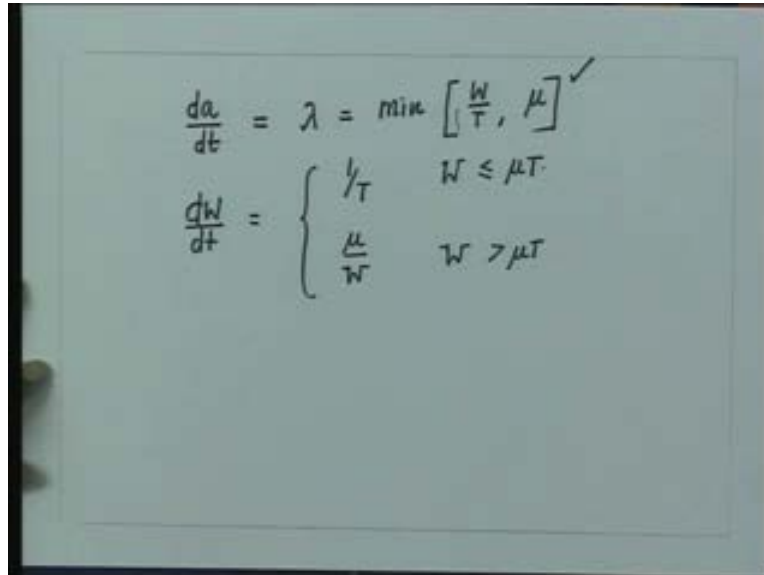 da/dt = λ = min [W/T, μ] ✓
dW/dt = { 1/T W ≤ μT.
μ/W W > μT